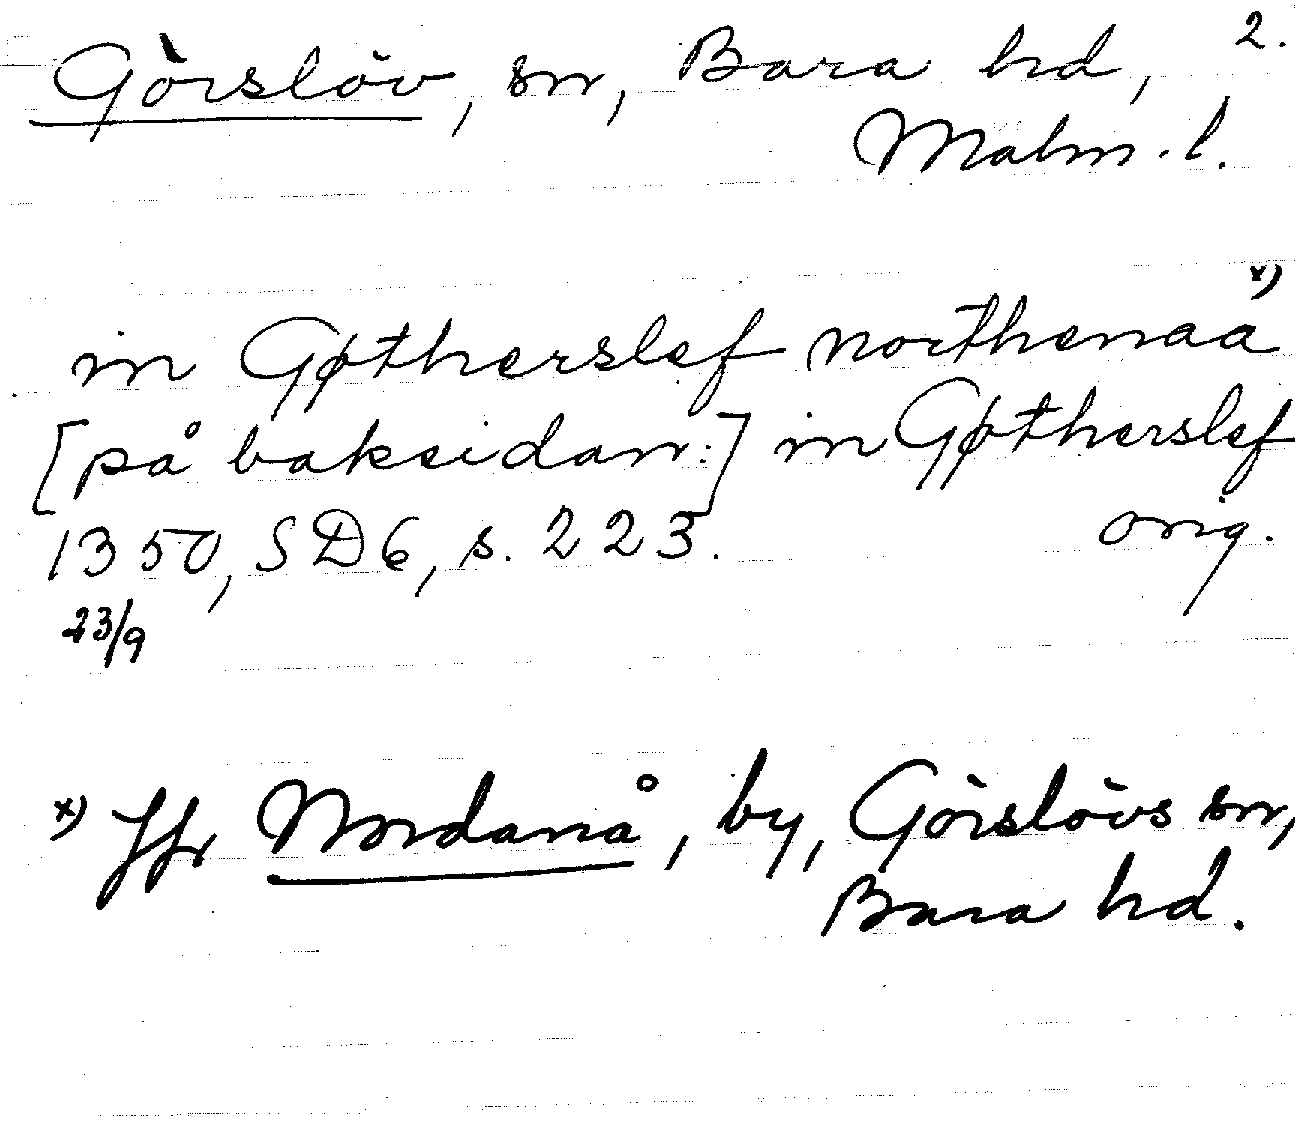 2.
Görslöv, sn, Bara hd,
Malm. l.
in Gøtherslef northenaa x)
[på baksidan:] in Gøtherslef
1350, SD6, s. 223. orig.
23/9
x) Jfr Nordanå, by, Görslövs sn,
Bara hd.